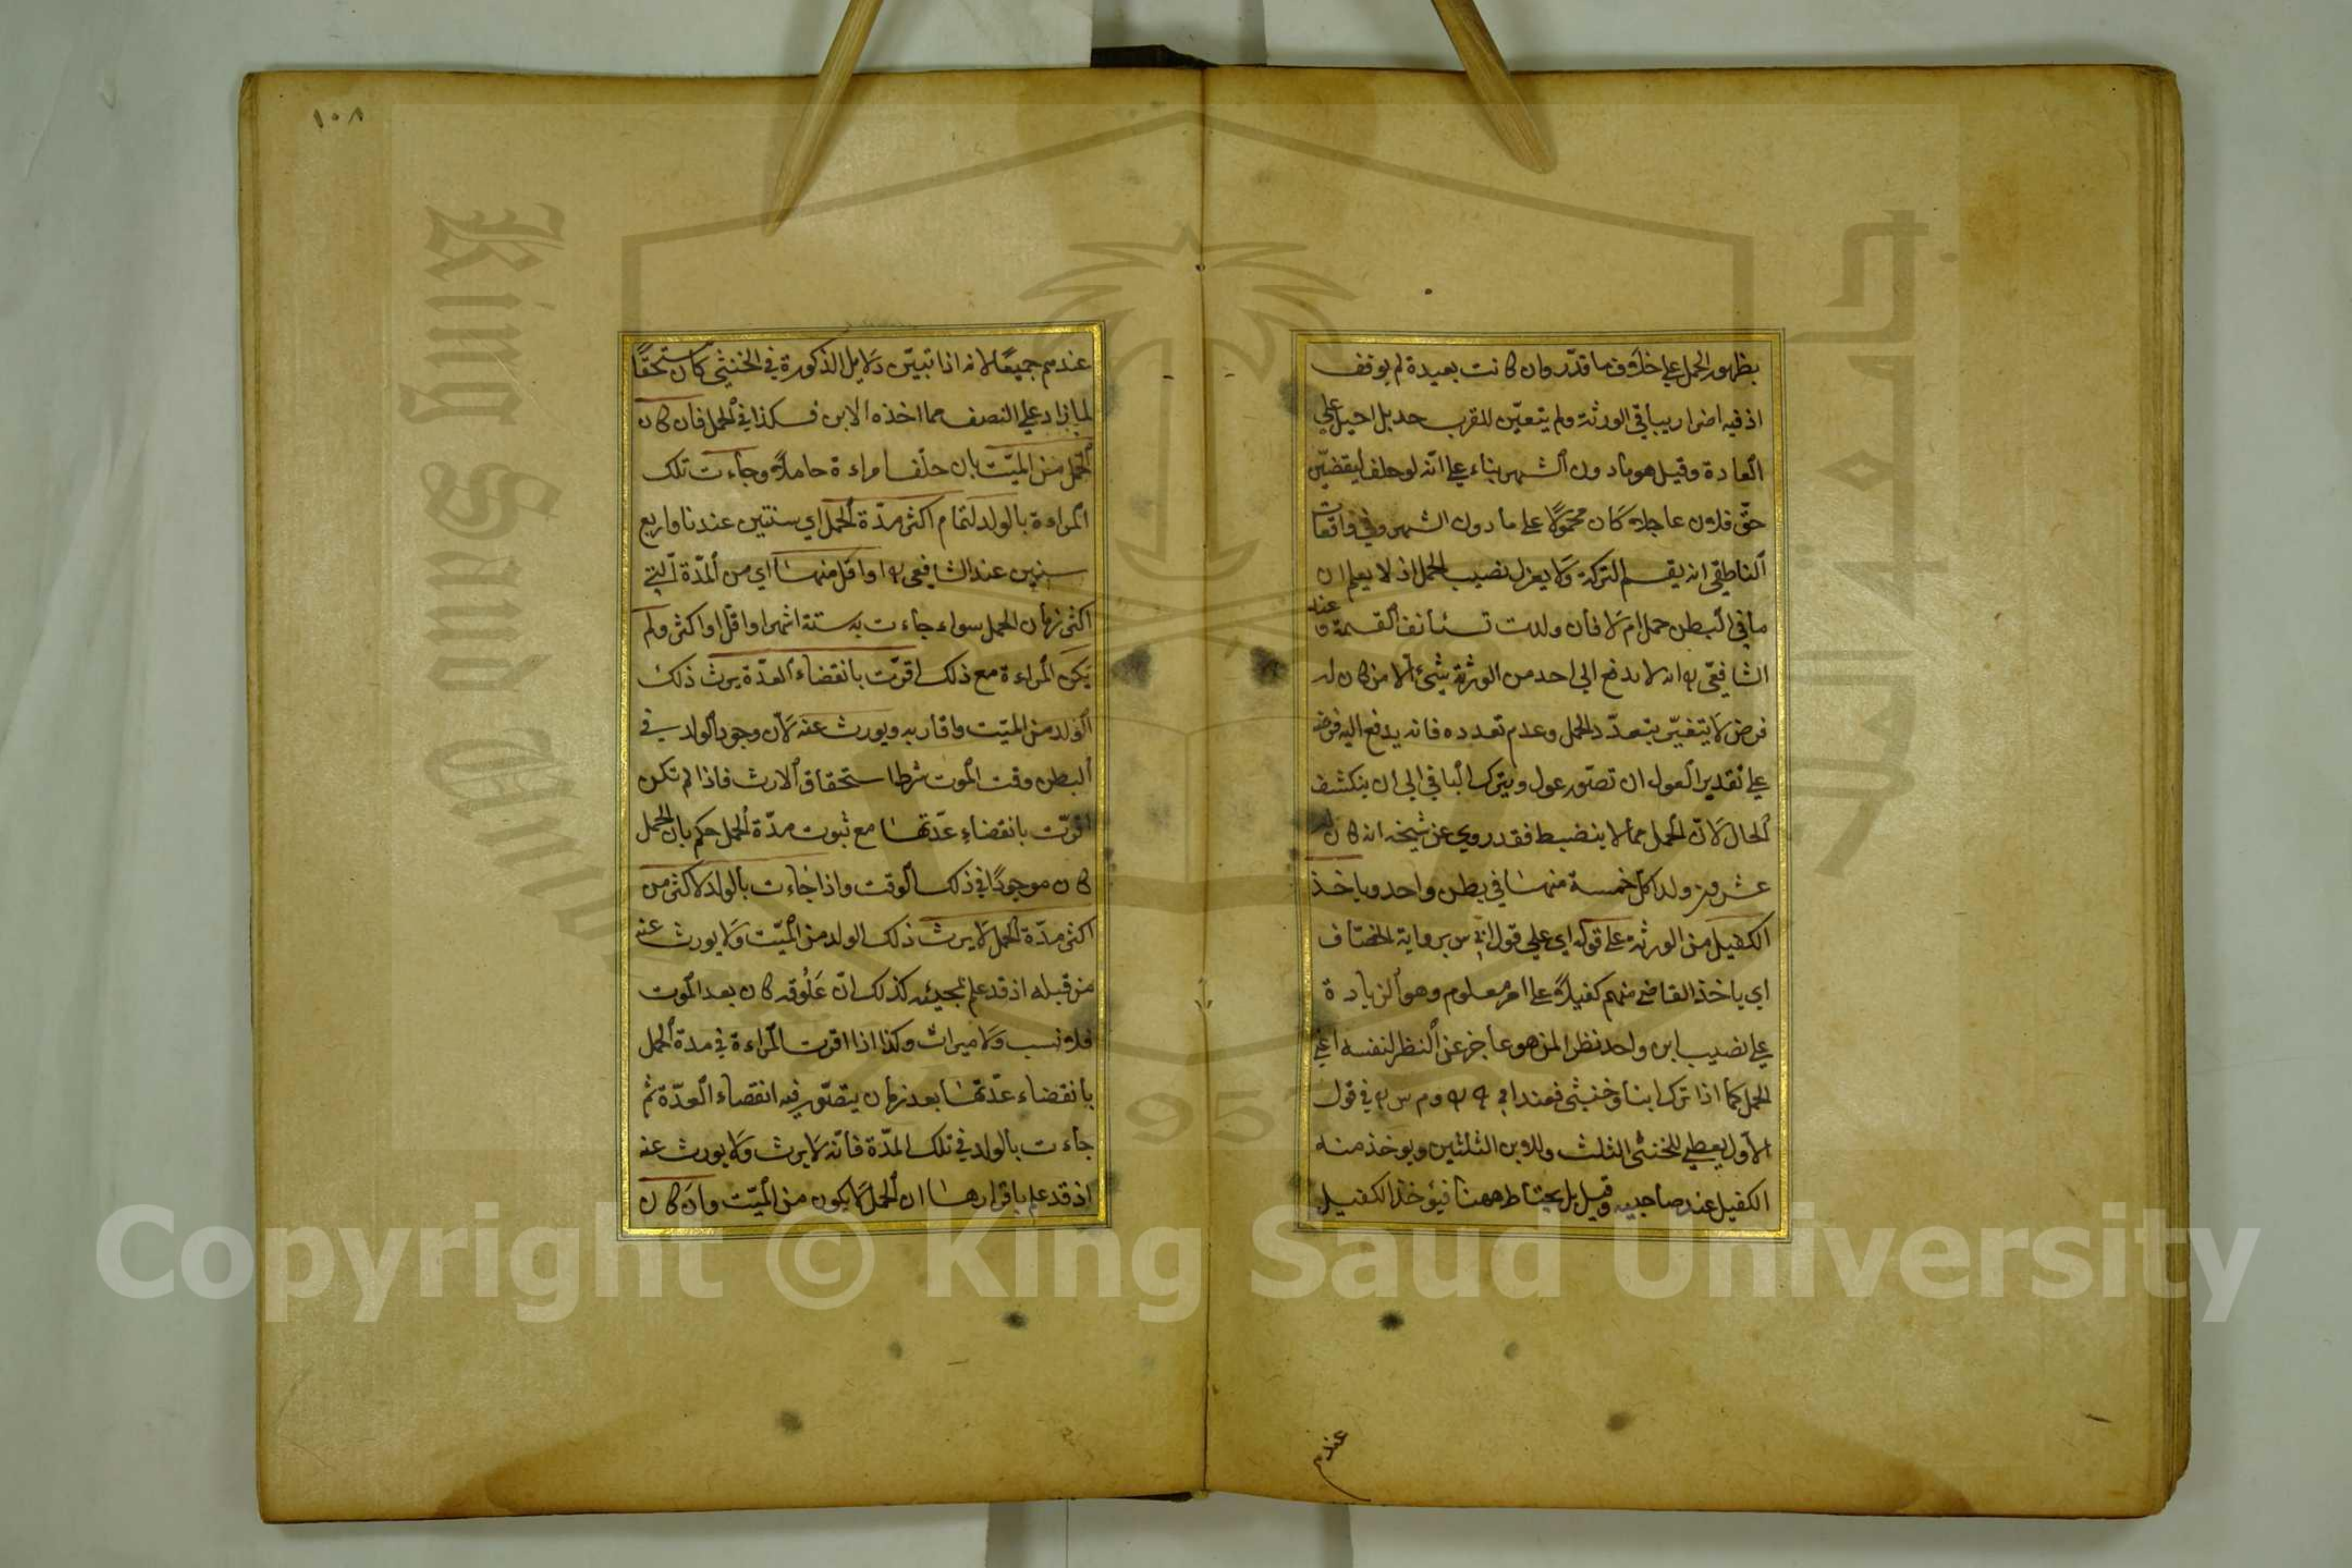 بظهور الحمل علي خلاف ما قدّر وان كانت بعيدة لم يوقف
اذ فيه اضرار بباقي الورثة ولم يتعيّن للقرب حد بل احيل علي
العادة وقيل هو مادون الشهر بناء علي انّه لو حلف ليقضيّن
حقّ فلان عاجلا كان محمولا علي ما دون الشهر وفي واقعات
الناطفي انه يقسم التركة ولا يعزل نصيب الحمل اذ لا يعلم ان
ما في البطن حمل ام لا فأن ولدت تستأنف القسمة و عند
الشافعّي ره انه لا يدفع الي احد من الورثة شئ الا من كان له
فرض لا يتغيّر بتعدّد الحمل وعدم تعدده فانه يدفع اليه فرضه
علي تقدير العول ان تصّور عول ويترك الباقي الي ان ينكشف
الحال لانّ الحمل مما لا ينضبط فقد روي عن شيخه انه كان له
عشرون ولدا كل خمسة منها في بطن واحد وياخذ
الكفيل من الورثة علي قوله اي علي قول ابي س برواية الخصّاف
اي ياخذ القاضي منهم كفيلاً علي امر معلوم وهو الزيادة
علي نصيب ابن واحد نظرا لمن هو عاجز عن النظر لنفسه اعني
الحمل كما اذا ترك ابنا وخنثي فعند ابي ح ره وم س ره في قول
الاول يعطي للخنثي الثلث وللابن الثلثين ويوخذ منه
الكفيل عند صاحبيه وقيل بل يحتاط ههنا فيؤخذ الكفيل
عندهم
١٠٨
عندهم جميعًا لانه اذا تبيّن دلايل الذكورة في الخنثي كان مستحقًا
لما زاد علي النصف مما اخذه الابن فكذا في الحمل فان كان
الحمل من الميّت بان خلف امراءة حاملاً وجاءت تلك
المراءة بالولد لتمام اكثر مدّة الحمل اي سنتين عندنا واربع
سنين عند الشافعي ره او اقل منها اي من المدّة الّتي
اكثر زمان الحمل سواء جاءت به ستة اشهر او اقل او اكثر ولم
يكن المراءة مع ذلك اقرّت بانقضاء العدّة يرث ذلك
الولد من الميّت واقاربه ويورث عنه لانّ وجود الولد في
البطن وقت الموت شرط استحقاق الارث فاذا لم تكن
اقرّت بانقضاء عدّتها مع ثبوت مدّة الحمل حكم بان الحمل
كان موجودًا في ذلك الوقت واذا جاءت بالولد لاكثر من
اكثر مدّة الحمل لا يرث ذلك الولد من الميّت ولا يورث عنه
من قبله اذ قد علم بمجيئه كذلك انّ عَلُوقه كان بعد الموت
فلا نسب ولا ميراث وكذا اذا اقرت المراءة في مدة الحمل
بانقضاء عدّتها بعد زمان يتصّور فيه انقضاء العدّة ثم
جاءت بالولد في تلك المدّة فانّه لا يرث ولا يورث عنه
اذ قد علم باقرارها ان الحمل لا يكون من الميّت وان كان
King Saud University
جامعة الملك سعود
1957
Copyright © King Saud University